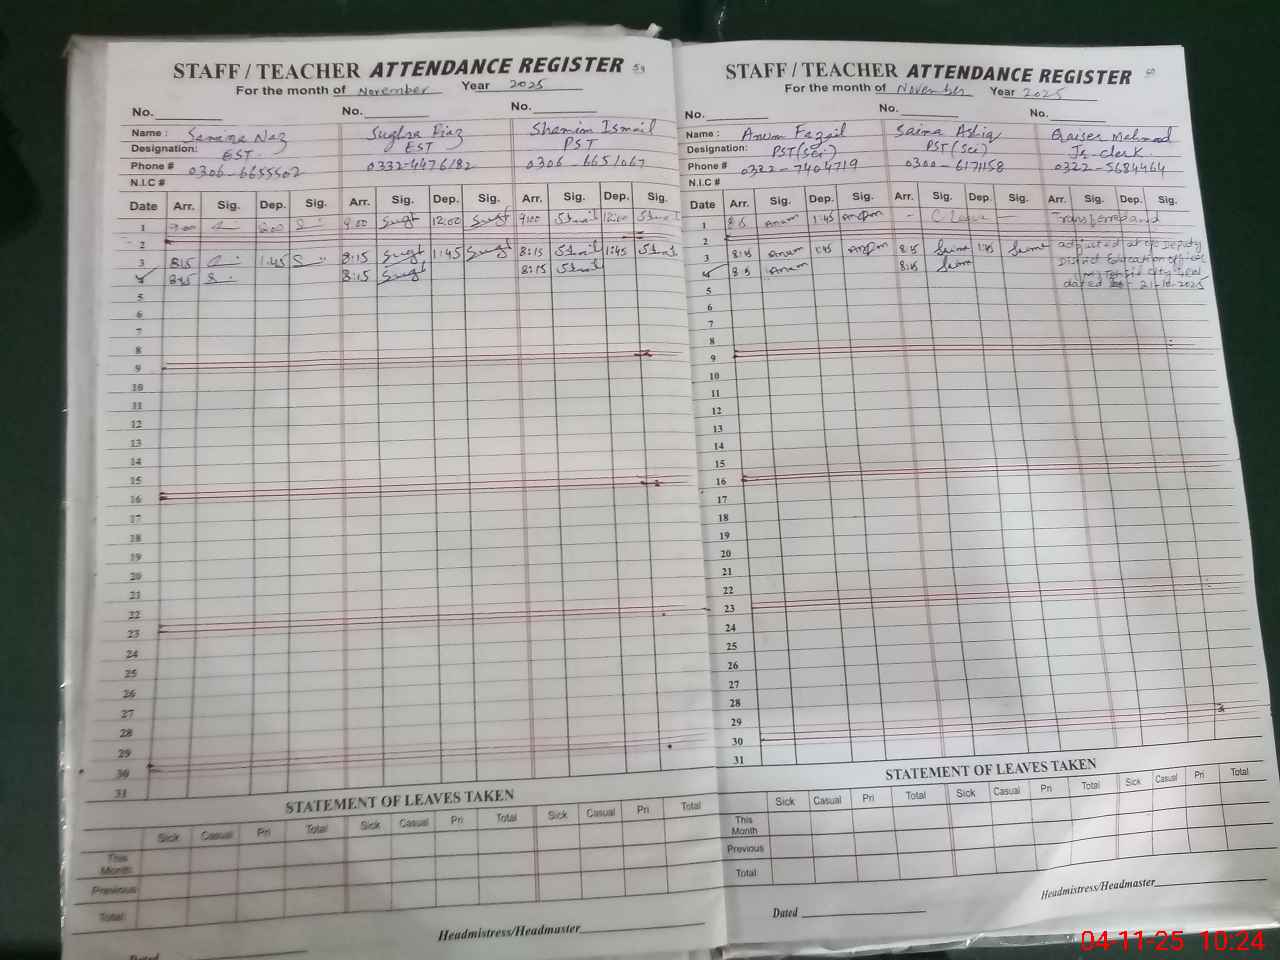 STAFF / TEACHER ATTENDANCE REGISTER 59
For the month of November Year 2025
No. No. No.
Name : Samina Naz Sughra Riaz Shamim Ismail
Designation: EST. EST PST
Phone # 0306-6655502 0332-4476182 0306-6651067
N.I.C #
Date Arr. Sig. Dep. Sig. Arr. Sig. Dep. Sig. Arr. Sig. Dep. Sig.
1 9:00 9:00 12:00 9:00 12:00
2
3 8:15 1:45 8:15 1:45 8:15 1:45
4 8:15 8:15 8:15
5
6
7
8
9
10
11
12
13
14
15
16
17
18
19
20
21
22
23
24
25
26
27
28
29
30
31
STATEMENT OF LEAVES TAKEN
Sick Casual Pri Total Sick Casual Pri Total Sick Casual Pri Total
This Month
Previous
Total
Headmistress/Headmaster
Dated
STAFF / TEACHER ATTENDANCE REGISTER 60
For the month of November Year 2025
No. No. No.
Name : Anum Fazail Saima Ashiq Qaiser Mehmood
Designation: PST(Sci) PST(Sci) Jr-clerk.
Phone # 0322-7404719 0300-6171158 0322-5684464
N.I.C #
Date Arr. Sig. Dep. Sig. Arr. Sig. Dep. Sig. Arr. Sig. Dep. Sig.
1 8:15 Anum 1:45 Anum - C leave - Transferred and
2
3 8:15 Anum 1:45 Anum 8:15 Saima 1:45 Saima adjusted at o/o Deputy
4 8:15 Anum 8:15 Saima District Education officer
city
5 dated 21-10-2025
6
7
8
9
10
11
12
13
14
15
16
17
18
19
20
21
22
23
24
25
26
27
28
29
30
31
STATEMENT OF LEAVES TAKEN
Sick Casual Pri Total Sick Casual Pri Total Sick Casual Pri Total
This Month
Previous
Total
Headmistress/Headmaster
Dated
04-11-25 10:24